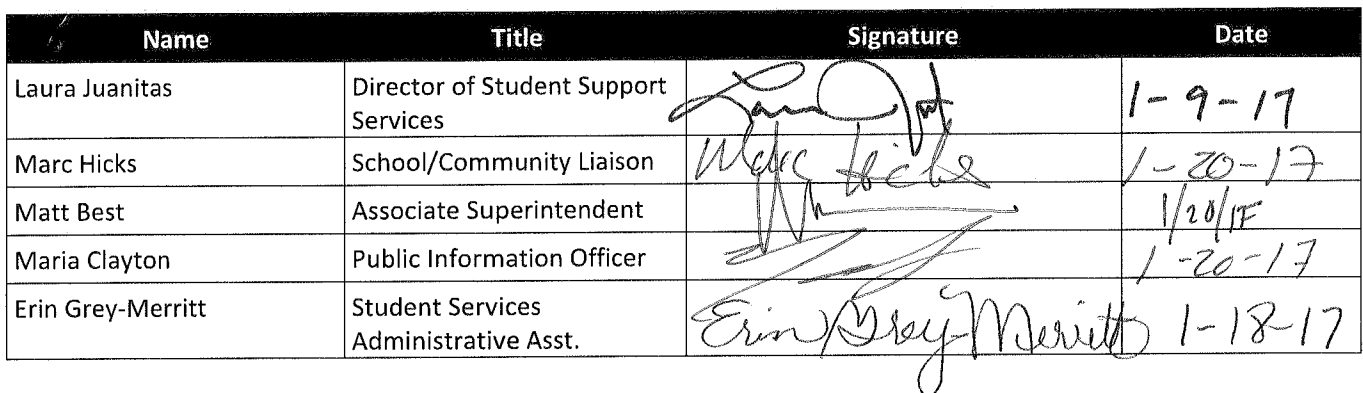 Name Title Signature Date
Laura Juanitas Director of Student Support Services 1-9-17
Marc Hicks School/Community Liaison Marc Hicks 1-20-17
Matt Best Associate Superintendent 1/20/17
Maria Clayton Public Information Officer 1-20-17
Erin Grey-Merritt Student Services Administrative Asst. Erin Grey-Merritt 1-18-17